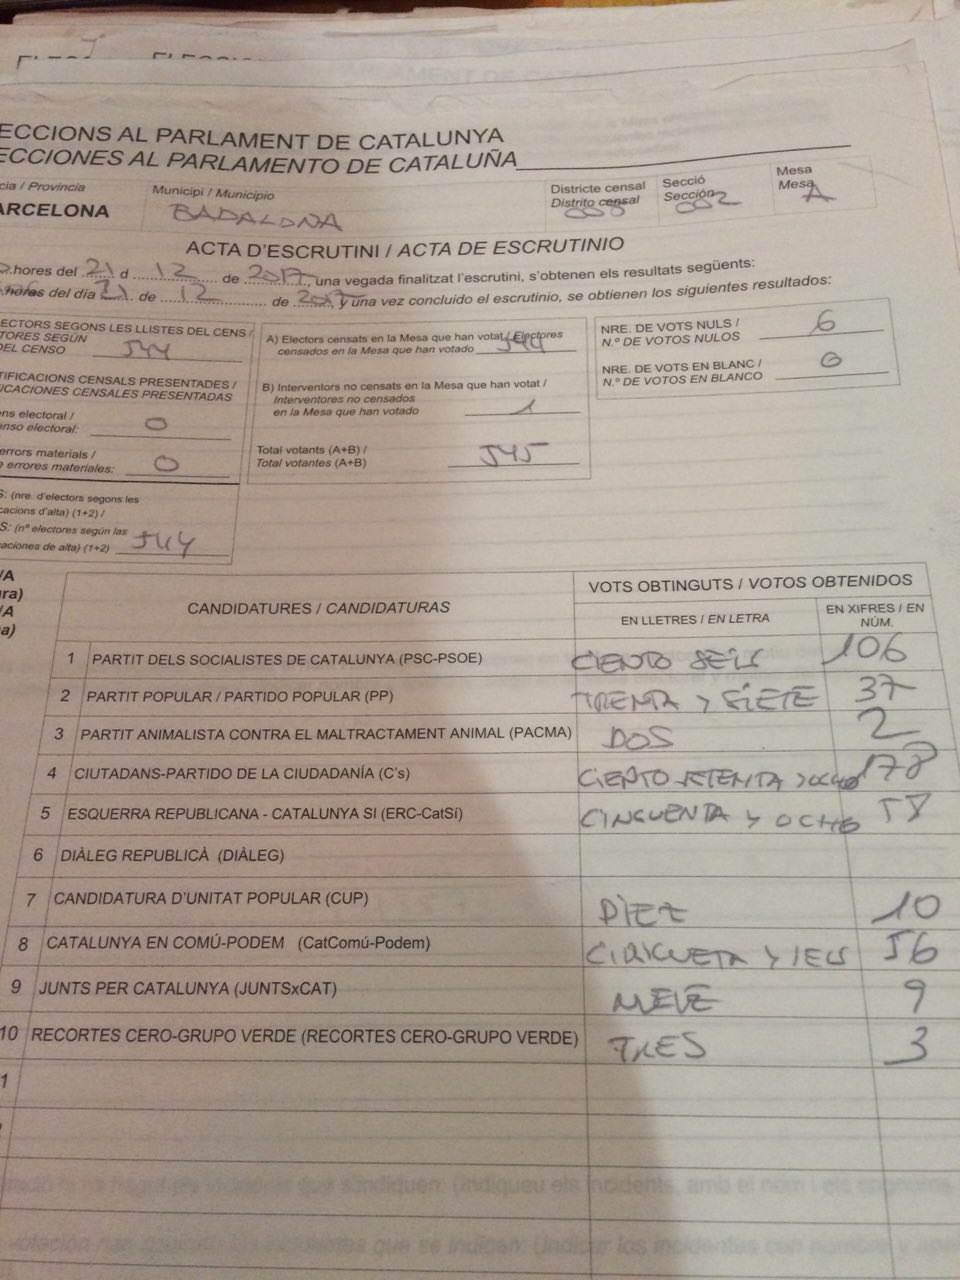 ECCIONS AL PARLAMENT DE CATALUNYA
ECCIONES AL PARLAMENTO DE CATALUÑA
cia / Provincia
ARCELONA
Municipi / Municipio
BADALONA
Districte censal
Distrito censal
Secció
Sección
002
Mesa
Mesa
A
ACTA D'ESCRUTINI / ACTA DE ESCRUTINIO
hores del 21 d 12 de 2017, una vegada finalitzat l'escrutini, s'obtenen els resultats següents:
horas del día 21 de 12 de 2017, y una vez concluido el escrutinio, se obtienen los siguientes resultados:
ECTORS SEGONS LES LLISTES DEL CENS /
TORES SEGÚN
DEL CENSO 544
TIFICACIONS CENSALS PRESENTADES /
ICACIONES CENSALES PRESENTADAS
ens electoral /
enso electoral: 0
errors materials /
e errores materiales: 0
S: (nre. d'electors segons les
cacions d'alta) (1+2) /
S: (nº electores según las
caciones de alta) (1+2) 544
A) Electors censats en la Mesa que han votat / Electores
censados en la Mesa que han votado 544
B) Interventors no censats en la Mesa que han votat /
Interventores no censados
en la Mesa que han votado 1
Total votants (A+B) /
Total votantes (A+B) 545
NRE. DE VOTS NULS /
N.º DE VOTOS NULOS 6
NRE. DE VOTS EN BLANC /
N.º DE VOTOS EN BLANCO 0
/A
ura)
/A
a)
CANDIDATURES / CANDIDATURAS
VOTS OBTINGUTS / VOTOS OBTENIDOS
EN LLETRES / EN LETRA
EN XIFRES / EN
NÚM.
1 PARTIT DELS SOCIALISTES DE CATALUNYA (PSC-PSOE) CIENTO SEIS 106
2 PARTIT POPULAR / PARTIDO POPULAR (PP) TRENTA Y SIETE 37
3 PARTIT ANIMALISTA CONTRA EL MALTRACTAMENT ANIMAL (PACMA) DOS 2
4 CIUTADANS-PARTIDO DE LA CIUDADANÍA (C's) CIENTO SETENTA Y OCHO 178
5 ESQUERRA REPUBLICANA - CATALUNYA SI (ERC-CatSí) CINCUENTA Y OCHO 58
6 DIÀLEG REPUBLICÀ (DIÀLEG)
7 CANDIDATURA D'UNITAT POPULAR (CUP) DIEZ 10
8 CATALUNYA EN COMÚ-PODEM (CatComú-Podem) Y SEIS 56
9 JUNTS PER CATALUNYA (JUNTSxCAT) NUEVE 9
10 RECORTES CERO-GRUPO VERDE (RECORTES CERO-GRUPO VERDE) TRES 3
1